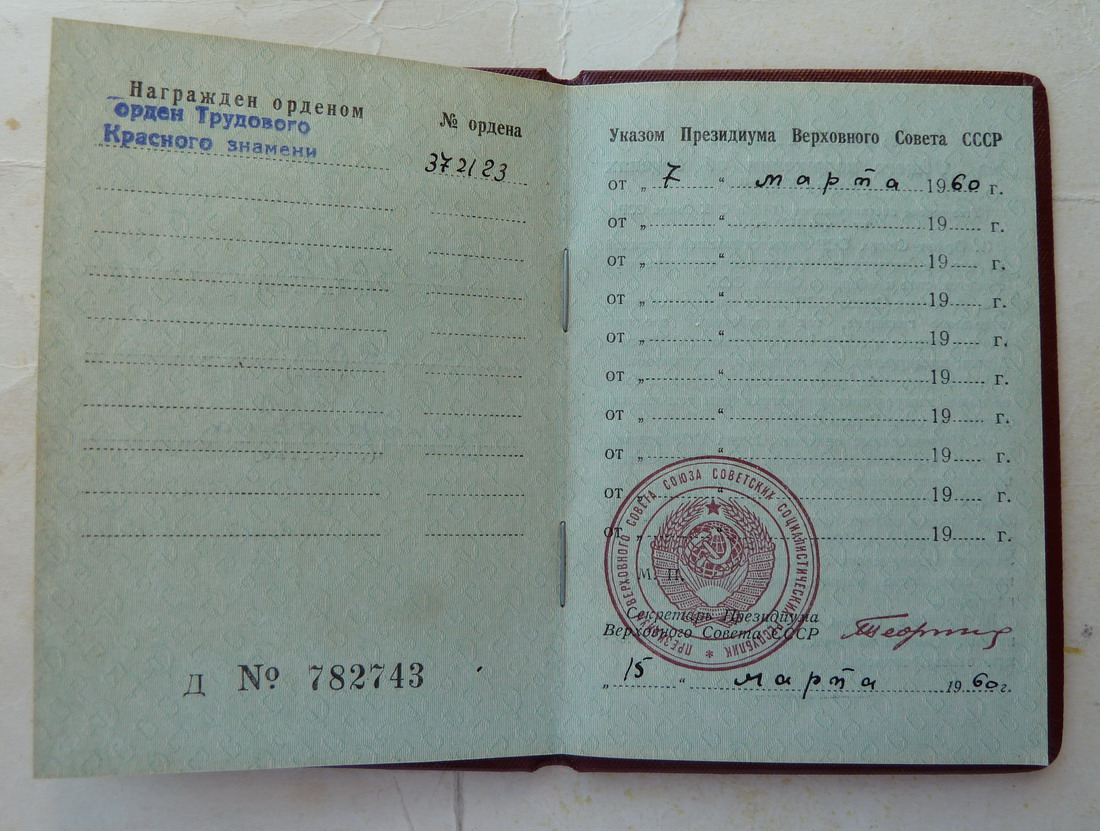 Награжден орденом
орден Трудового
Красного знамени
№ ордена
372123
Д № 782743
Указом Президиума Верховного Совета СССР
от „ 7 “ марта 1960 г.
от „ “ 19 г.
от „ “ 19 г.
от „ “ 19 г.
от „ “ 19 г.
от „ “ 19 г.
от „ “ 19 г.
от „ “ 19 г.
от „ “ 19 г.
от „ “ 19 г.
ПРЕЗИДИУМ ВЕРХОВНОГО СОВЕТА СОЮЗА СОВЕТСКИХ СОЦИАЛИСТИЧЕСКИХ РЕСПУБЛИК *
М. П.
Секретарь Президиума
Верховного Совета СССР
„ 15 “ марта 1960 г.